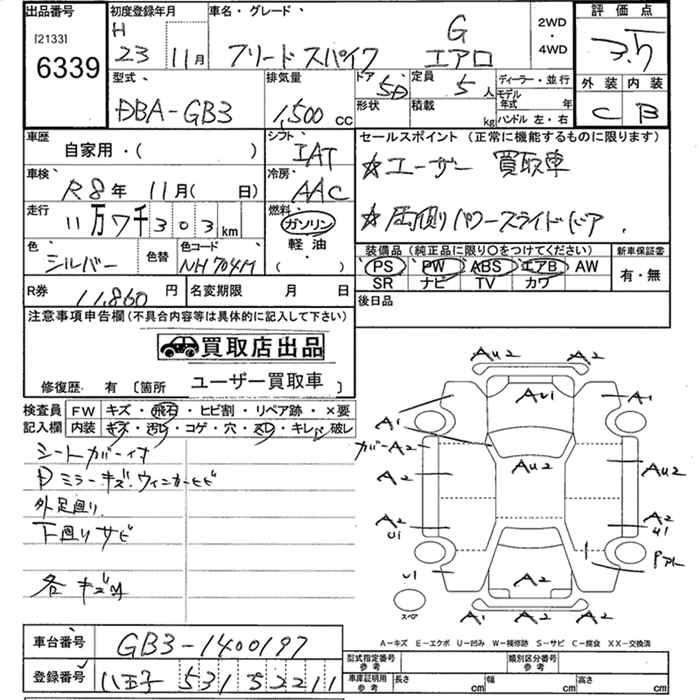 出品番号
[2133]
6339
初度登録年月
H
23 11月
車名・グレード
フリードスパイク G エアロ
2WD
・
4WD
評価点
3.5
外装 内装
C B
型式
DBA-GB3
排気量
1,500 cc
ドア 5D
形状
定員 5 人
積載 kg
ディーラー・並行
モデル年式 年
ハンドル 左・右
車歴
自家用・( )
シフト
IAT
セールスポイント (正常に機能するものに限ります)
☆ユーザー 買取車
☆両側パワースライドドア.
車検
R8年 11月( 日)
冷房
AAC
走行
11万7千303km
燃料
ガソリン
軽油
( )
色
シルバー
色替
色コード
NH704M
装備品 (純正品に限り○をつけてください)
PS PW ABS エアB AW
SR ナビ TV カワ
新車保証書
有・無
R券 11,860 円
名変期限 月 日
後日品
注意事項申告欄(不具合内容等は具体的に記入して下さい)
買取店出品
ユーザー買取車
修復歴 有 〔箇所
検査員
記入欄
FW キズ・飛石・ヒビ割・リペア跡・×要
内装 キズ・汚レ・コゲ・穴・スレ・キレ・破レ
シートカバー付
Dミラーキズ.ウィンカーヒビ
外足廻り
下廻りサビ
各キズ凹
AU2
AU1
A1
A1
ガバーA2
AU2
A2
AU2
A2
U1
A2
U1
U1
Pアト
A2
A1
A2
A2
スペア
A－キズ E－エクボ U－凹み W－補修跡 S－サビ C－腐食 XX－交換済
車台番号 GB3-1400197
登録番号 八王子 531 52211
型式指定番号
参考
類別区分番号
参考
車庫証明用
参考
長さ cm
幅 cm
高さ cm